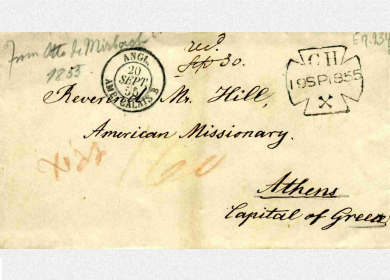 From Otto de
1855.
ANGL.
20
SEPT.
55
AMB. CALAIS
Recd
Sep 30.
C H
19SP1855
Reverend Mr. Hill,
American Missionary.
160
Athens
Capital of Greece